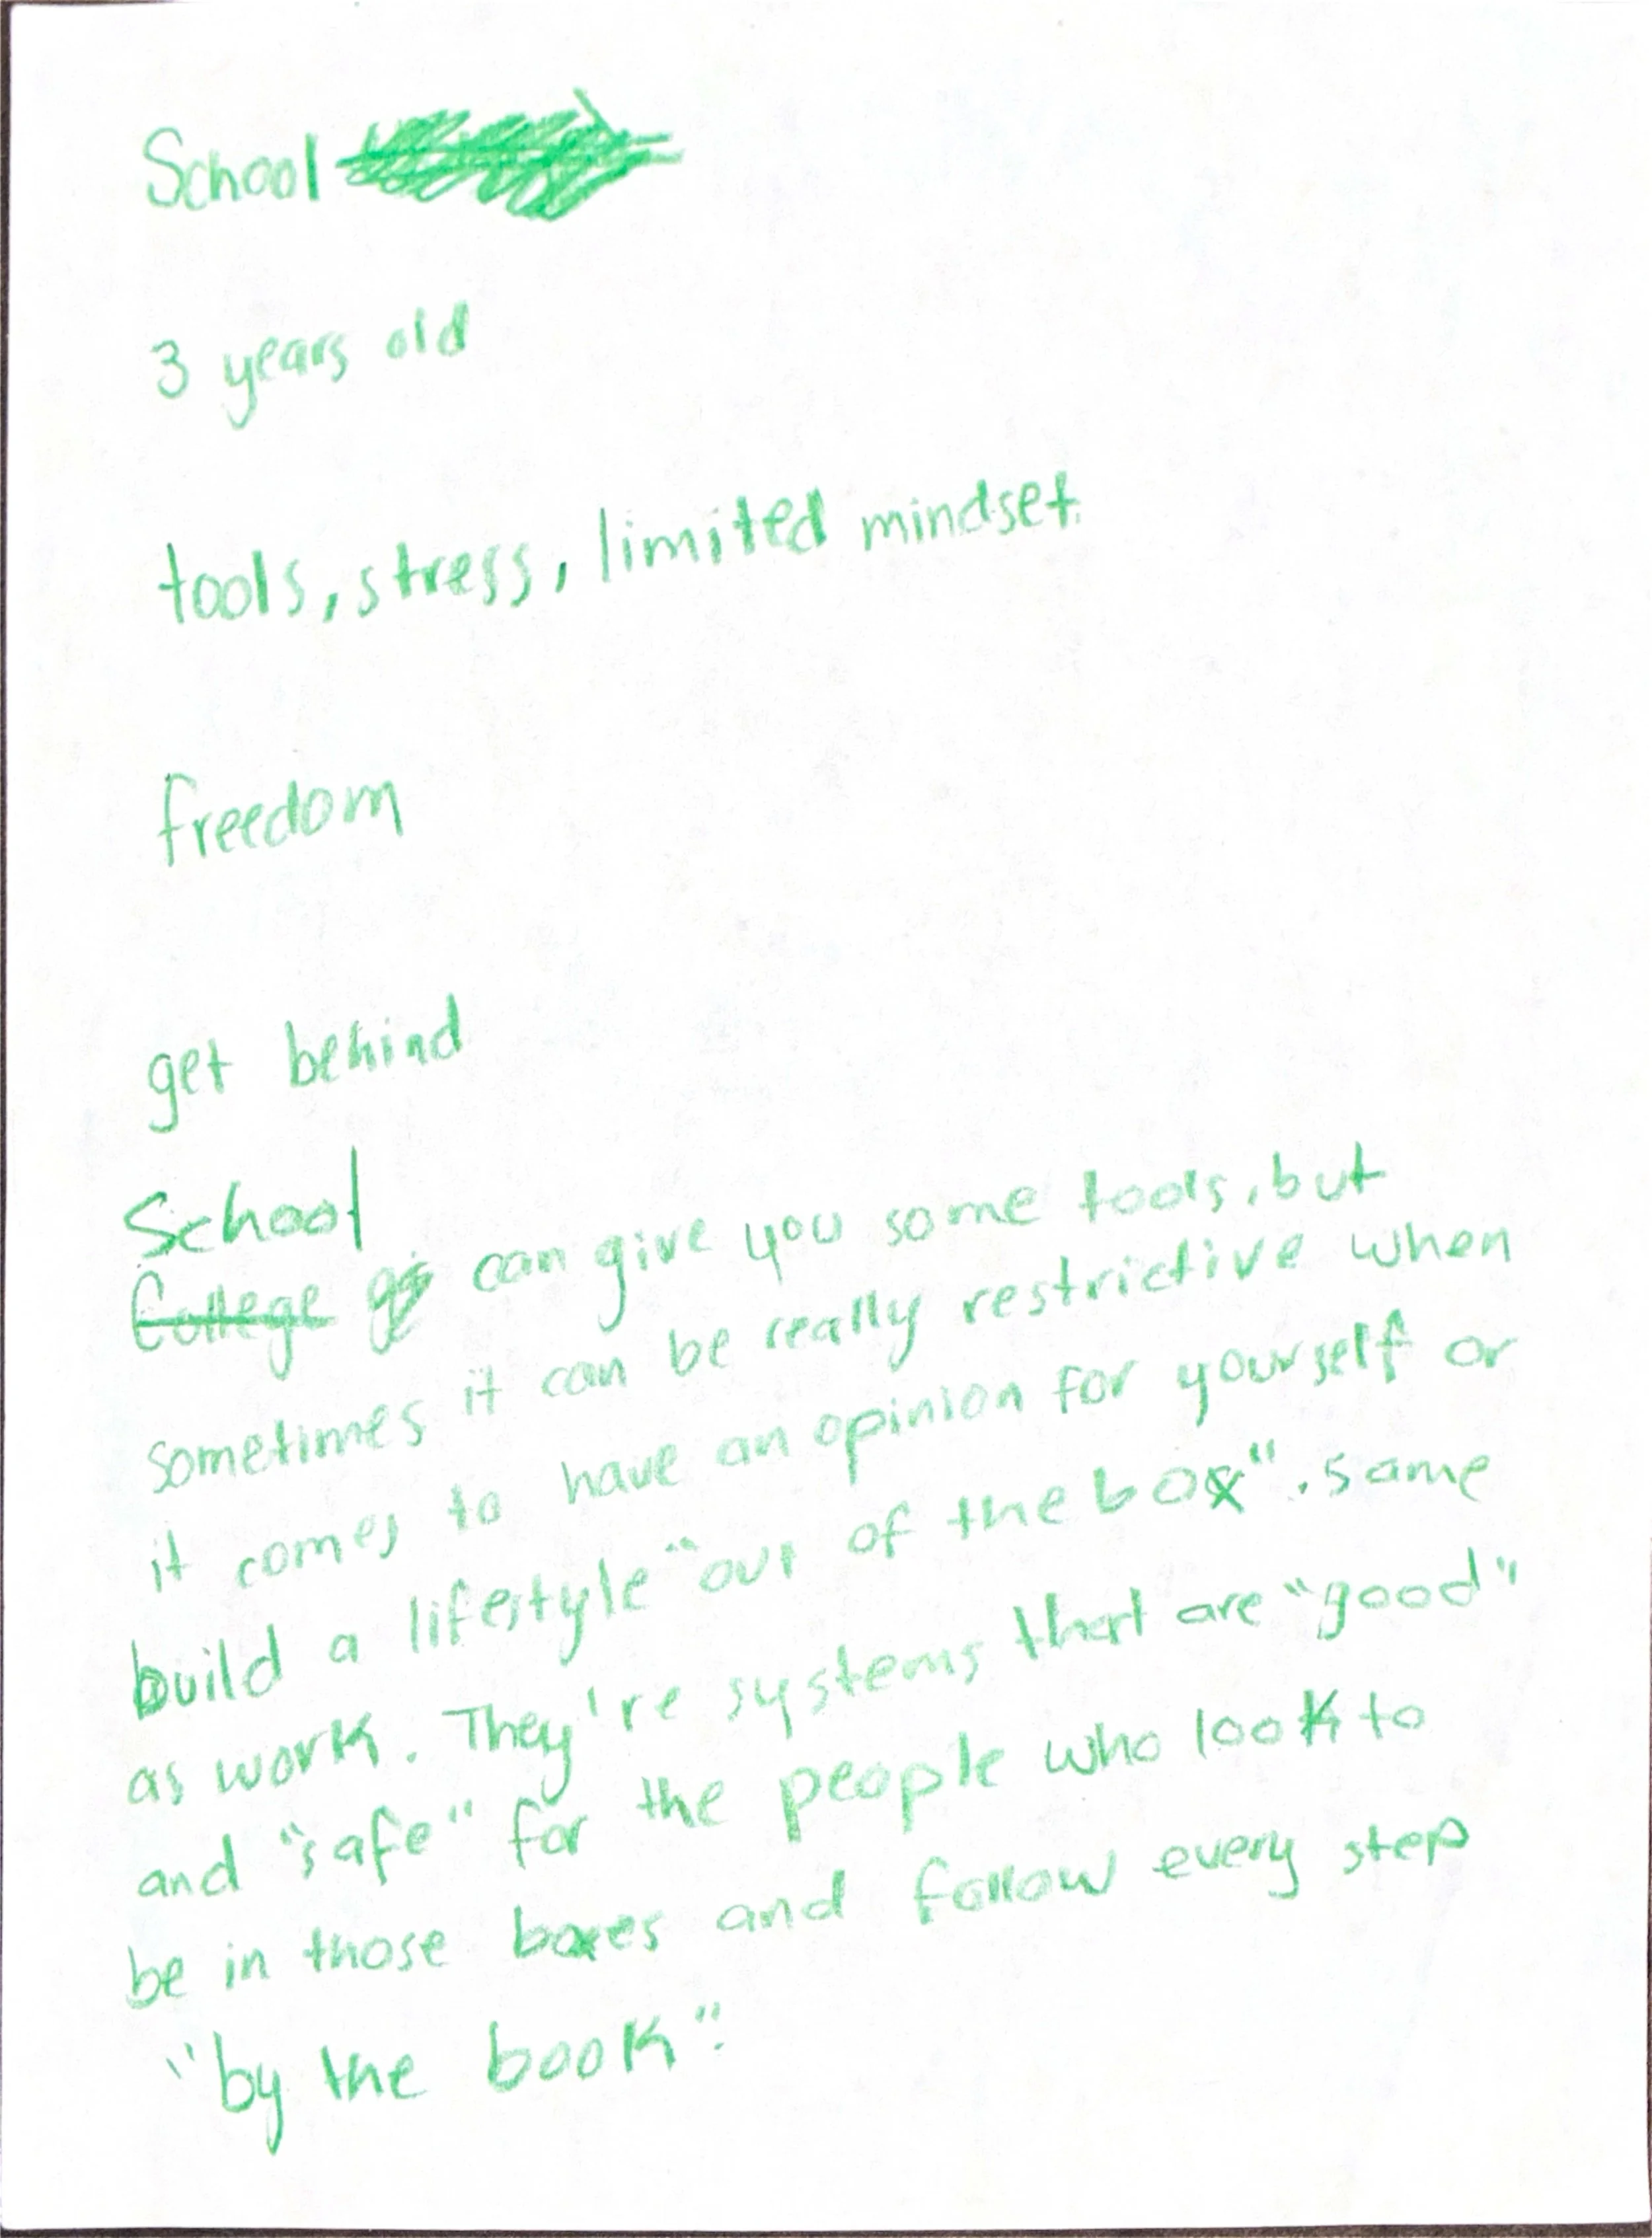 School
3 years old
tools, stress, limited mindset.
freedom
get behind
School
College can give you some tools, but
sometimes it can be really restrictive when
it comes to have an opinion for yourself or
build a lifestyle "out of the box". same
as work. They're systems that are "good"
and "safe" for the people who look to
be in those boxes and follow every step
"by the book".